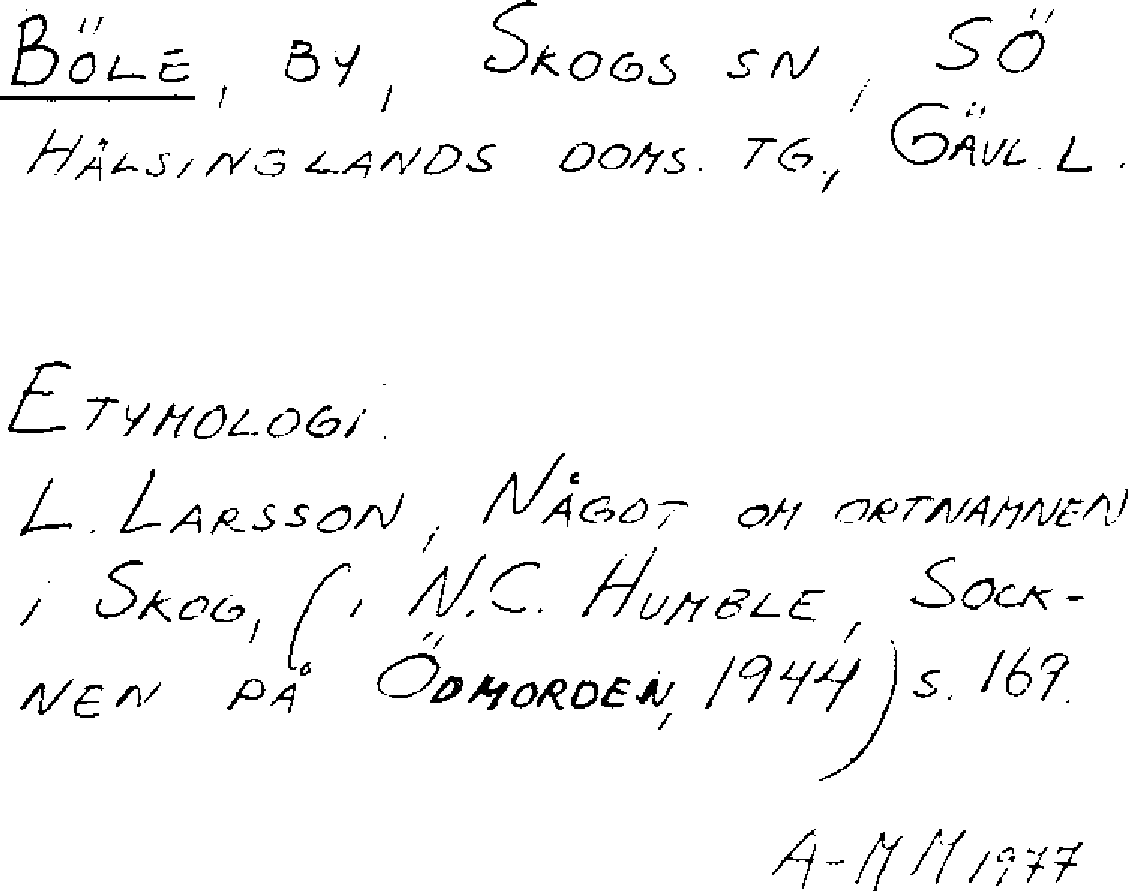 Böle, by, Skogs sn, sö
Hälsinglands doms. tg., Gävl. l.
Etymologi.
L. Larsson, Något om ortnamnen
i Skog, (i N.C. Humble, Sock-
nen på Ödmorden, 1944) s. 169.
A-M M 1977